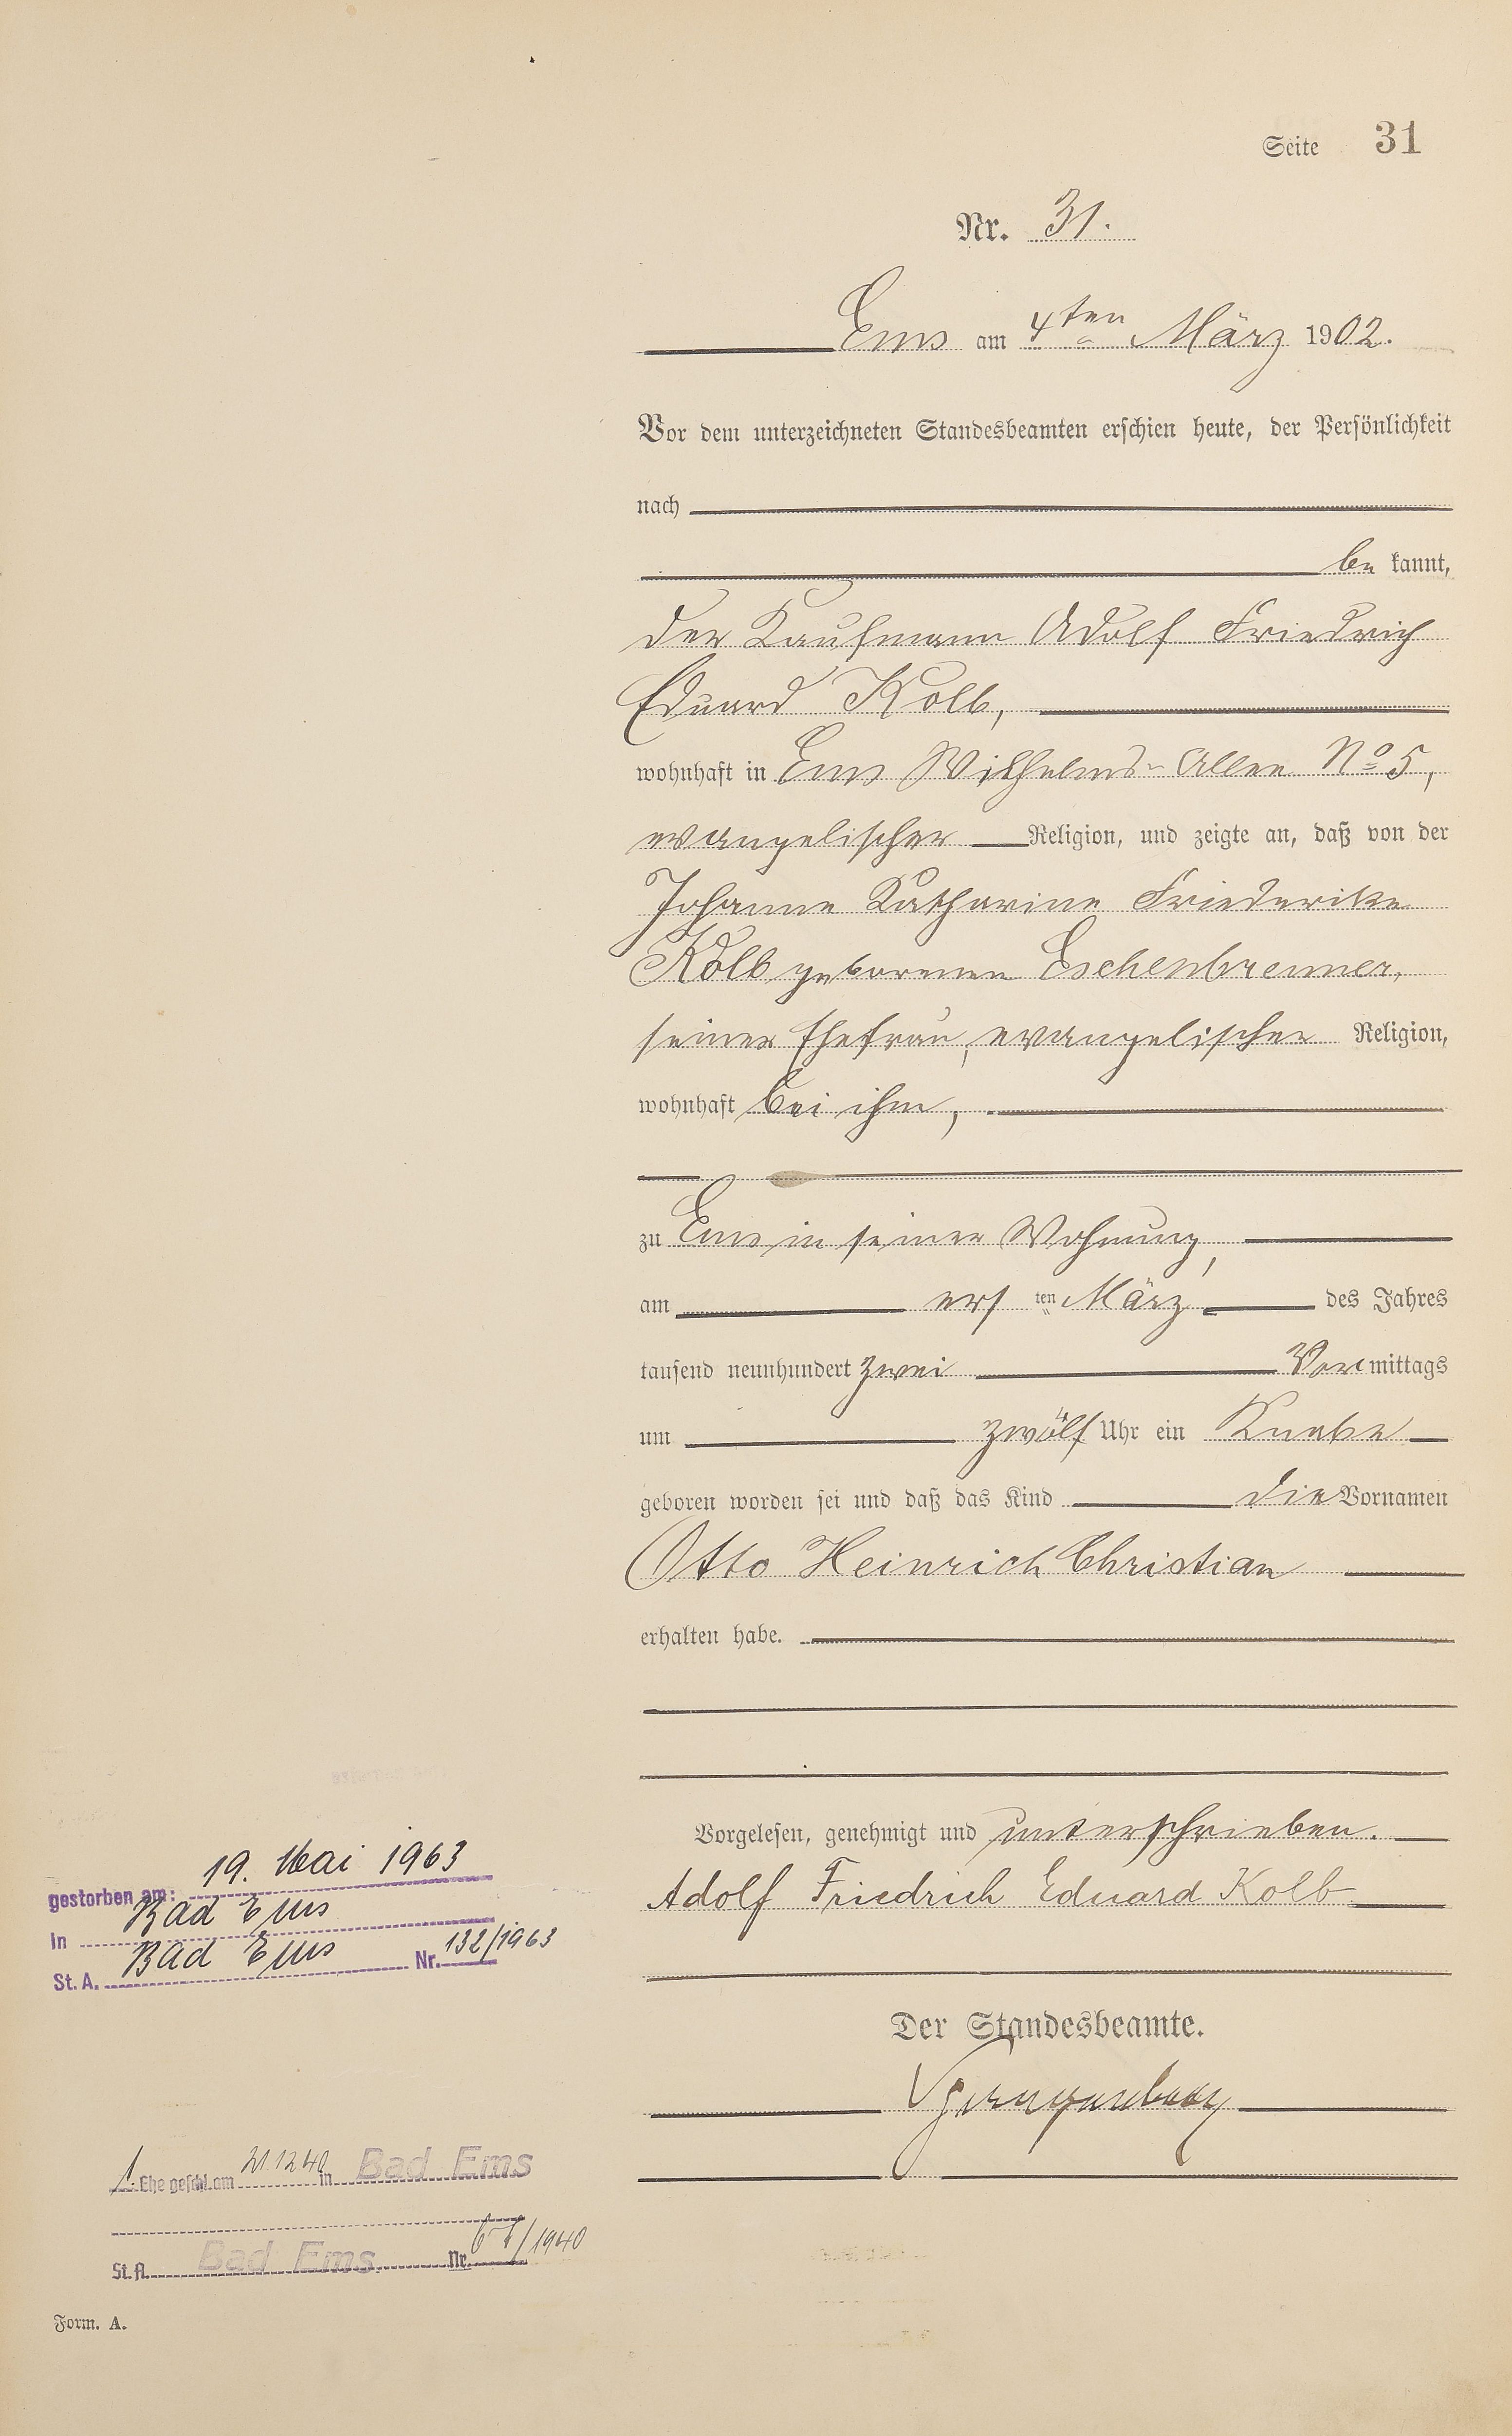 Seite 31
Nr. 31.
Ems am 4ten März 1902.
Vor dem unterzeichneten Standesbeamten erschien heute, der Persönlichkeit
nach
be kannt,
der Kaufmann Adolf Friedrich
Eduard Kolb,
wohnhaft in Ems Wilhelms-Allee No 5,
evangelischer Religion, und zeigte an, daß von der
Johanne Katharine Friederike
Kolb geborenen Eschenbrenner,
seiner Ehefrau, evangelischer Religion,
wohnhaft bei ihm,
zu Ems in seiner Wohnung,
am ersten März des Jahres
tausend neunhundert zwei Vormittags
um zwölf Uhr ein Knabe
geboren worden sei und daß das Kind die Vornamen
Otto Heinrich Christian
erhalten habe.
Vorgelesen, genehmigt und unterschrieben.
Adolf Friedrich Eduard Kolb
Der Standesbeamte.
gestorben am: 19. Mai 1963
in Bad Ems
St. A. Bad Ems Nr. 132/1963
1. Ehe geschl. am 21.12.40 in Bad Ems
St. A. Bad Ems Nr. /1940
Form. A.